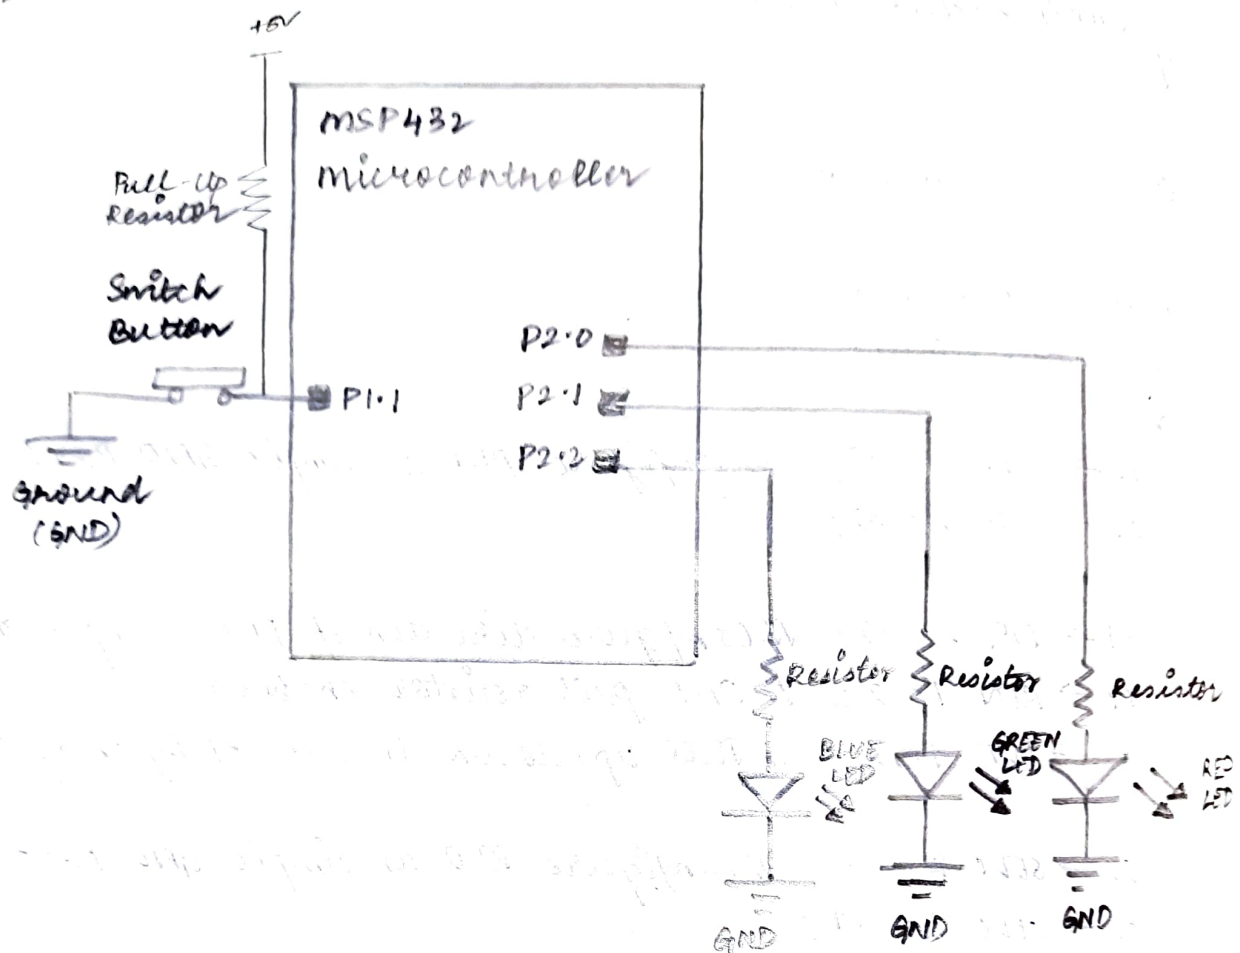 +5V
MSP432
Microcontroller
Pull-Up
Resistor
Switch
Button
P2.0
P1.1
P2.1
P2.2
Ground
(GND)
Resistor
Resistor
Resistor
BLUE
LED
GREEN
LED
RED
LED
GND
GND
GND